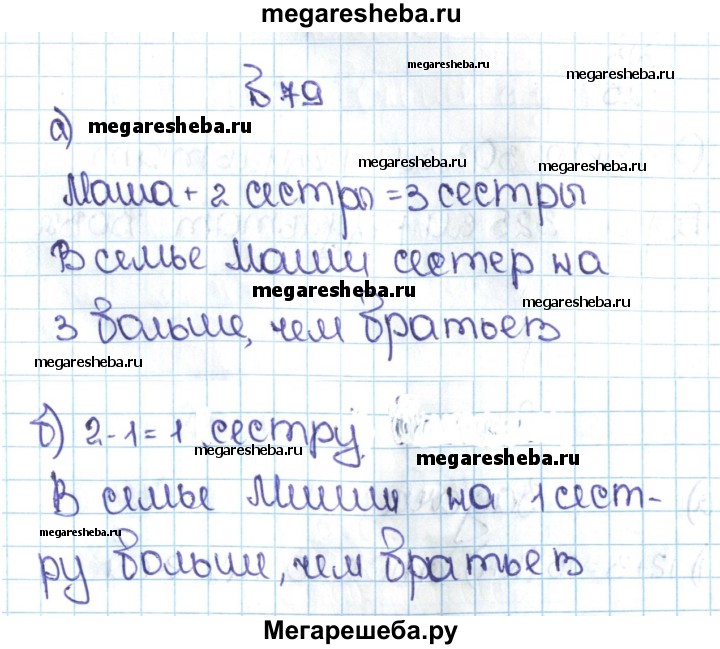 megaresheba.ru
megaresheba.ru
megaresheba.ru
В 79
а) megaresheba.ru
megaresheba.ru
megaresheba.ru
Маша + 2 сестры = 3 сестры
В семье Маши сестер на
megaresheba.ru
megaresheba.ru
3 больше, чем братьев
megaresheba.ru
б) 2-1=1 сестру
megaresheba.ru
megaresheba.ru
В семье Миши на 1 сест-
megaresheba.ru
ру больше, чем братьев
Мегарешеба.ру